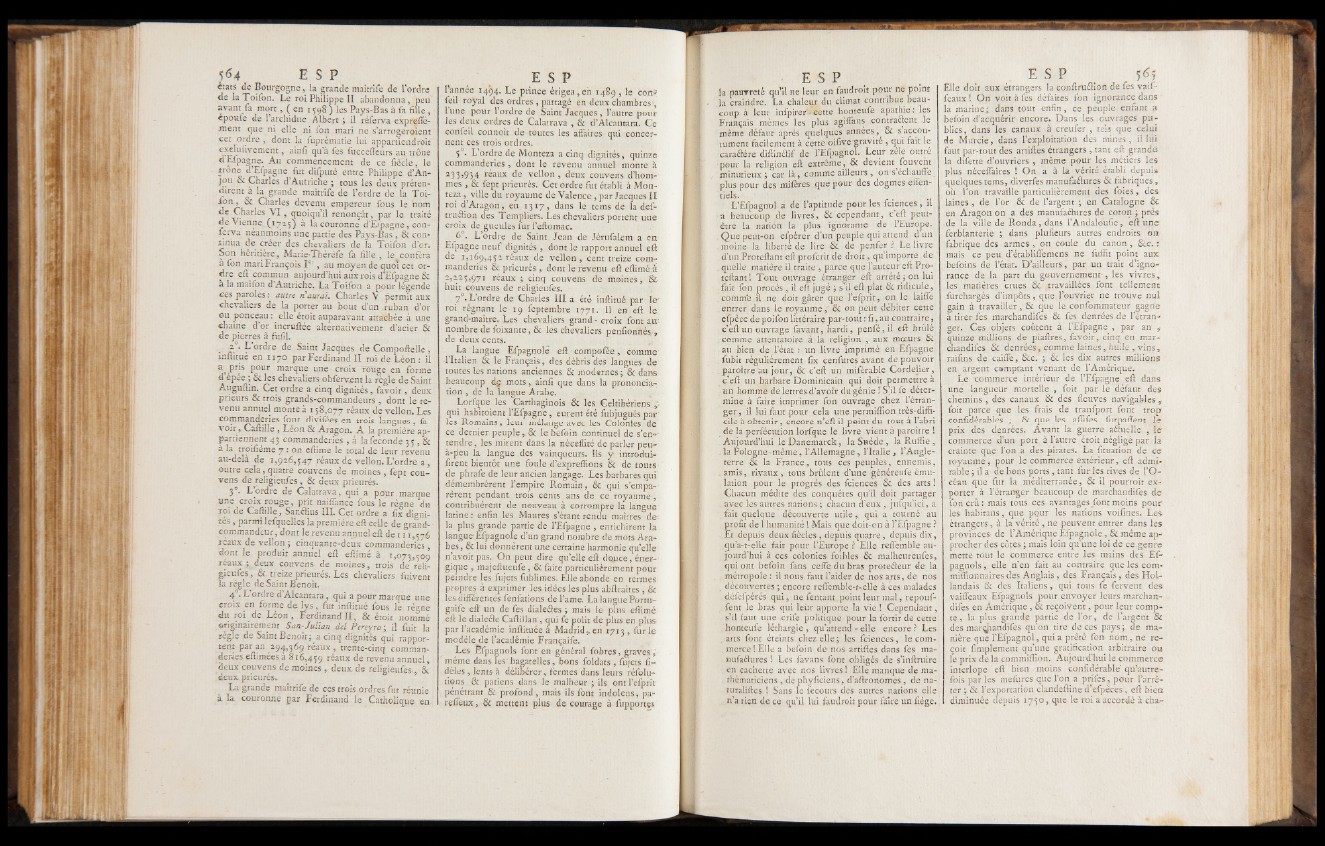 564 E S P
états de Bourgogne, la grande maîtrise de l'ordre
de la Toison. Le roi Philippe II abandonna, peu
avant sa mort, (en 1598) les Pays-Bas à sa fille,
épouse de l'archiduc Albert ; il réserva expressé-
ment que ni elle ni son mari ne s'arrogeroient
cet ordre, dont la suprématie lui appartiendroit
exclusivement, ainsi qu'à ses successeurs au trône
d'Espagne. Au commencement de ce siècle, le
trône d'Espagne fut disputé entre Philippe d'An-
jou & Charles d'Autriche ; tous les deux préten-
dirent à la grande maîtrise de l'ordre de la Toi-
son, & Charles devenu empereur sous le nom
de Charles VI, quoiqu'il renonçât, par le traité
de Vienne (1725) à la couronne d'Espagne, con-
serva néanmoins une partie des Pays-Bas, & con-
tinua de créer des chevaliers de la Toison d'or.
Son héritière, Marie-Thérèse sa fille, le conféra
à son mari François Ier, au moyen de quoi cet or-
dre est commun aujourd'hui aux rois d'Espagne &
à la maison d'Autriche. La Toison a pour légende
ces paroles : autre n'aurai. Charles V permit aux
chevaliers de la porter au bout d'un ruban d'or
ou ponceau : elle étoit auparavant attachée à une
chaîne d'or incrustée alternativement d'acier &
de pierres à fusil.
2°. L'ordre de Saint Jacques de Compostelle,
institué en 1170 par Ferdinand II roi de Léon : il
a pris pour marque une croix rouge en forme
d'épée ; & les chevaliers observent la règle de Saint
Augustin. Cet ordre a cinq dignités, savoir, deux
prieurs & trois grands-commandeurs, dont le re-
venu annuel monte à 158,077 réaux de vellon. Les
commanderies sont divisées en trois langues, sa-
voir, Castille, Léon & Aragon. A la première ap-
partiennent 43 commanderies, à la seconde 35, &
à la troisième 7 : on estime le total de leur revenu
au-delà de 1,926,547 réaux de vellon. L'ordre a,
outre cela, quatre couvens de moines, sept cou-
vens de religieuses, & deux prieurés.
3°. L'ordre de Calatrava, qui a pour marque
une croix rouge, prit naissance sous le règne du
roi de Castille, Sanctius III. Cet ordre a six digni-
tés, parmi lesquelles la première est celle de grand-
commandeur, dont le revenu annuel est de 111,576
réaux de vellon ; cinquante-deux commanderies,
dont le produit annuel est estimé à 1,073,509
réaux ; deux couvens de moines, trois de reli-
gieuses, & treize prieurés. Les chevaliers suivent
la règle de Saint Benoît.
4°. L'ordre d'Alcantara, qui a pour marque une
croix en forme de lys, fut institué sous le règne
du roi de Léon, Ferdinand II, & étoit nommé
originairement San-Julian del Pereyro ; il suit la
règle de Saint Benoît ; a cinq dignités qui rappor-
tent par an 294,369 réaux, trente-cinq comman-
deries estimées à 816,459 réaux de revenu annuel,
deux couvens de moines, deux de religieuses, &
deux prieurés.
La grande maîtrise de ces trois ordres fut réunie
à la couronne par Ferdinand le Catholique en
E S P
l'année 1494. Le prince érigea, en 1489, le con-
seil royal des ordres, partagé en deux chambres,
l'une pour l'ordre de Saint Jacques, l'autre pour
les deux ordres de Calatrava, & d'Alcantara. Ce
conseil connoît de toutes les affaires qui concer-
nent ces trois ordres.
5°. L'ordre de Monteza a cinq dignités, quinze
commanderies, dont le revenu annuel monte à
233,934 réaux de vellon, deux couvens d'hom-
mes, & sept prieurés. Cet ordre fut établi à Mon-
teza, ville du royaume de Valence, par Jacques II
roi d'Aragon, en 1317, dans le tems de la des-
truction des Templiers. Les chevaliers portent une
croix de gueules sur l'estomac.
6°. L'ordre de Saint Jean de Jérusalem a en
Espagne neuf dignités, dont le rapport annuel est
de 1,169,452 réaux de vellon, cent treize com-
manderies & prieurés, dont le revenu est estimé à
2,225,971 réaux ; cinq couvens de moines, &
huit couvens de religieuses.
7°. L'ordre de Charles III a été institué par le
roi régnant le 19 septembre 1771. Il en est le
grand-maître. Les chevaliers grand-croix sont au
nombre de soixante, & les chevaliers pensionnés,
de deux cents.
La langue Espagnole est composée, comme
l'Italien & le Français, des débris des langues de
toutes les nations anciennes & modernes ; & dans
beaucoup de mots, ainsi que dans la prononcia-
tion, de la langue Arabe.
Lorsque les Carthaginois & les Celtibériens,
qui habitoient l'Espagne, eurent été subjugués par
les Romains, leur mélange avec les Colonies de
ce dernier peuple, & le besoin continuel de s'en-
tendre, les mirent dans la nécessité de parler peu-
à-peu la langue des vainqueurs. Ils y introdui-
sirent bientôt une foule d'expressions & de tours
de phrase de leur ancien langage. Les barbares qui
démembrèrent l'empire Romain, & qui s'empa-
rèrent pendant trois cents ans de ce royaume,
contribuèrent de nouveau à corrompre la langue
latine : enfin les Maures s'étant rendu maîtres de
la plus grande partie de l'Espagne, enrichirent la
langue Espagnole d'un grand nombre de mots Ara-
bes, & lui donnèrent une certaine harmonie qu'elle
n'avoit pas. On peut dire qu'elle est douce, éner-
gique, majestueuse, & faite particulièrement pour
peindre les sujets sublimes. Elle abonde en termes
propres à exprimer les idées les plus abstraites, &
les différentes sensations de l'ame. La langue Portu-
gaise est un de ses dialectes ; mais le plus estimé
est le dialecte Castillan, qui se polit de plus en plus
par l'académie instituée à Madrid, en 1713, sur le
modèle de l'académie Française.
Les Espagnols sont en général sobres, graves,
même dans les bagatelles, bons soldats, sujets fi-
dèles, lents à délibérer, fermes dans leurs résolu-
tions & patiens dans le malheur ; ils ont l'esprit
pénétrant & profond, mais ils sont indolens, pa-
resseux, & mettent plus de courage à supporter
E S P
la pauvreté qu'il ne leur en faudroit pour ne point
la craindre. La chaleur du climat contribue beau-
coup à leur inspirer cette honteuse apathie : les
Français mêmes les plus agissans contractent le
même défaut après quelques années, & s'accou-
tument facilement à cette oisive gravité, qui fait le
caractère distinctif de l'Espagnol. Leur zèle outré
pour la religion est extrême, & devient souvent
minutieux ; car là, comme ailleurs, on s'échauffe
plus pour des misères que pour des dogmes essen-
tiels.
L'Espagnol a de l'aptitude pour les sciences, il
a beaucoup de livres, & cependant, c'est peut-
être la nation la plus ignorante de l'Europe.
Que peut-on espérer d'un peuple qui attend d'un
moine la liberté de lire & de penser ? Le livre
d'un Protestant est proscrit de droit, qu'importe de
quelle matière il traite, parce que l'auteur est Pro-
testant ! Tout ouvrage étranger est arrêté ; on lui
fait son procès, il est jugé ; s'il est plat & ridicule,
comme il ne doit gâter que l'esprit, on le laisse
entrer dans le royaume, & on peut débiter cette
espèce de poison littéraire par-tout : si, au contraire,
c'est un ouvrage savant, hardi, pensé, il est brûlé
comme attentatoire à la religion, aux mœurs &
au bien de l'état : un livre imprimé en Espagne
subit régulièrement six censures avant de pouvoir
paroître au jour, & c'est un misérable Cordelier,
c'est un barbare Dominicain qui doit permettre à
un homme de lettres d'avoir du génie ! S'il se déter-
mine à faire imprimer son ouvrage chez l'étran-
ger, il lui faut pour cela une permission très-diffi-
cile à obtenir, encore n'est-il point du tout à l'abri
de la persécution lorsque le livre vient à paroître !
Aujourd'hui le Danemarck, la Suède, la Russie,
la Pologne-même, l'Allemagne, l'Italie, l'Angle-
terre & la France, tous ces peuples, ennemis,
amis, rivaux, tous brûlent d'une généreuse ému-
lation pour le progrès des sciences & des arts !
Chacun médite des conquêtes qu'il doit partager
avec les autres nations ; chacun d'eux, jusqu'ici, a
fait quelque découverte utile, qui a tourné au
profit de l'humanité ! Mais que doit-on à l'Espagne ?
Et depuis deux siècles, depuis quatre, depuis dix,
qu'a-t-elle fait pour l'Europe ? Elle ressemble au-
jourd'hui à ces colonies foibles & malheureuses,
qui ont besoin sans cesse du bras protecteur de la
métropole : il nous faut l'aider de nos arts, de nos
découvertes ; encore ressemble-t-elle à ces malades
désespérés qui, ne sentant point leur mal, repous-
sent le bras qui leur apporte la vie ! Cependant,
s'il faut une crise politique pour la sortir de cette
honteuse léthargie, qu'attend-elle encore ? Les
arts sont éteints chez elle ; les sciences, le com-
merce ! Elle a besoin de nos artistes dans ses ma-
nufactures ! Les savans sont obligés de s'instruire
en cachette avec nos livres ! Elle manque de ma-
thématiciens, de physiciens, d'astronomes, de na-
turalistes ! Sans le secours des autres nations elle
n'a rien de ce qu'il lui faudroit pour faire un siége.
E S P 565
Elle doit aux étrangers la construction de ses vais-
seaux ! On voit à ses défaites son ignorance dans
la marine ; dans tout enfin, ce peuple enfant a
besoin d'acquérir encore. Dans les ouvrages pu-
blics, dans les canaux à creuser, tels que celui
de Murcie, dans l'exploitation des mines, il lui
faut par-tout des artistes étrangers, tant est grande
la disette d'ouvriers, même pour les métiers les
plus nécessaires ! On a à la vérité établi depuis
quelques tems, diverses manufactures & fabriques,
où l'on travaille particulièrement des soies, des
laines, de l'or & de l'argent ; en Catalogne &
en Aragon on a des manufactures de coton ; près
de la ville de Ronda, dans l'Andalousie, est une
ferblanterie ; dans plusieurs autres endroits on
fabrique des armes, on coule du canon, &c. :
mais ce peu d'établissemens ne suffit point aux
besoins de l'état. D'ailleurs, par un trait d'igno-
rance de la part du gouvernement, les vivres,
les matières crues & travaillées sont tellement
surchargés d'impôts, que l'ouvrier ne trouve nul
gain à travailler, & que le consommateur gagne
à tirer ses marchandises & ses denrées de l'étran-
ger. Ces objets coûtent à l'Espagne, par an,
quinze millions de piastres, savoir, cinq en mar-
chandises & denrées, comme laines, huile, vins,
raisins de caisse, &c. ; & les dix autres millions
en argent comptant venant de l'Amérique.
Le commerce intérieur de l'Espagne est dans
une langueur mortelle, soit par le défaut des
chemins, des canaux & des fleuves navigables,
soit parce que les frais de transport sont trop
considérables, & que les assises surpassent le
prix des denrées. Avant la guerre actuelle, le
commerce d'un port à l'autre étoit négligé par la
crainte que l'on a des pirates. La situation de ce
royaume, pour le commerce extérieur, est admi-
rable ; il a de bons ports, tant sur les rives de l'O-
céan que sur la méditerranée, & il pourroit ex-
porter à l'étranger beaucoup de marchandises de
son crû : mais tous ces avantages sont moins pour
les habitans, que pour les nations voisines. Les
étrangers, à la vérité, ne peuvent entrer dans les
provinces de l'Amérique Espagnole, & même ap-
procher des côtes ; mais loin qu'une loi de ce genre
mette tout le commerce entre les mains des Es-
pagnols, elle n'en fait au contraire que les com-
missionnaires des Anglais, des Français, des Hol-
landais & des Italiens, qui tous se servent des
vaisseaux Espagnols pour envoyer leurs marchan-
dises en Amérique, & reçoivent, pour leur comp-
te, la plus grande partie de l'or, de l'argent &
des marchandises qu'on tire de ces pays ; de ma-
nière que l'Espagnol, qui a prêté son nom, ne re-
çoit simplement qu'une gratification arbitraire ou
le prix de la commission. Aujourd'hui le commerce
interlope est bien moins considérable qu'autre-
fois par les mesures que l'on a prises, pour l'arrê-
ter ; & l'exportation clandestine d'espèces, est bien
diminuée depuis 1750, que le roi a accordé à cha-